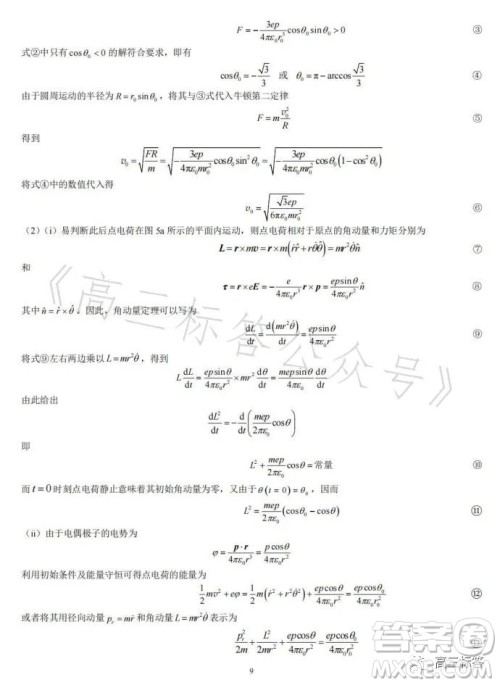 F = −\frac{3ep}{4πε_0 r_0^3} cosθ_0 sinθ_0 > 0 ③
式②中只有 cosθ_0 < 0 的解符合要求，即有
cosθ_0 = −\frac{\sqrt{3}}{3} 或 θ_0 = π − arccos\frac{\sqrt{3}}{3} ④
由于圆周运动的半径为 R = r_0 sinθ_0，将其与③式代入牛顿第二定律
F = m\frac{v_0^2}{R} ⑤
得到
v_0 = \sqrt{\frac{FR}{m}} = \sqrt{−\frac{3ep}{4πε_0 mr_0^2} cosθ_0 sin^2θ_0} = \sqrt{−\frac{3ep}{4πε_0 mr_0^2} cosθ_0 (1−cos^2θ_0)}
将式④中的数值代入得
v_0 = \sqrt{\frac{\sqrt{3}ep}{6πε_0 mr_0^2}} ⑥
（2）（i）易判断此后点电荷在图 5a 所示的平面内运动，则点电荷相对于原点的角动量和力矩分别为
L = r × mv = r × m(ṙr̂ + rθ̇θ̂) = mr^2θ̇n̂ ⑦
和
τ = r × eE = −\frac{e}{4πε_0 r^3} r × p = \frac{ep sinθ}{4πε_0 r^2} n̂ ⑧
其中 n̂ = r̂ × θ̂。因此，角动量定理可以写为
\frac{dL}{dt} = \frac{d(mr^2θ̇)}{dt} = \frac{ep sinθ}{4πε_0 r^2} ⑨
将式⑨左右两边乘以 L = mr^2θ̇，得到
L\frac{dL}{dt} = \frac{ep sinθ}{4πε_0 r^2} × mr^2\frac{dθ}{dt} = \frac{mep sinθ}{4πε_0}\frac{dθ}{dt}
由此给出
\frac{dL^2}{dt} = −\frac{d}{dt}(\frac{mep}{2πε_0} cosθ)
即
L^2 + \frac{mep}{2πε_0} cosθ = 常量 ⑩
而 t = 0 时刻点电荷静止意味着其初始角动量为零，又由于 θ(t = 0) = θ_0，因而
L^2 = \frac{mep}{2πε_0}(cosθ_0 − cosθ) ⑪
（ii）由于电偶极子的电势为
φ = \frac{p·r}{4πε_0 r^3} = \frac{p cosθ}{4πε_0 r^2}
利用初始条件及能量守恒可得点电荷的能量为
\frac{1}{2}mv^2 + eφ = \frac{1}{2}m(ṙ^2 + r^2θ̇^2) + \frac{ep cosθ}{4πε_0 r^2} = \frac{ep cosθ_0}{4πε_0 r_0^2} ⑫
或者将其用径向动量 p_r = mṙ 和角动量 L = mr^2θ̇ 表示为
\frac{p_r^2}{2m} + \frac{L^2}{2mr^2} + \frac{ep cosθ}{4πε_0 r^2} = \frac{ep cosθ_0}{4πε_0 r_0^2}
9
《高三标答公众号》
高三标答
答案圈
MXQE.COM